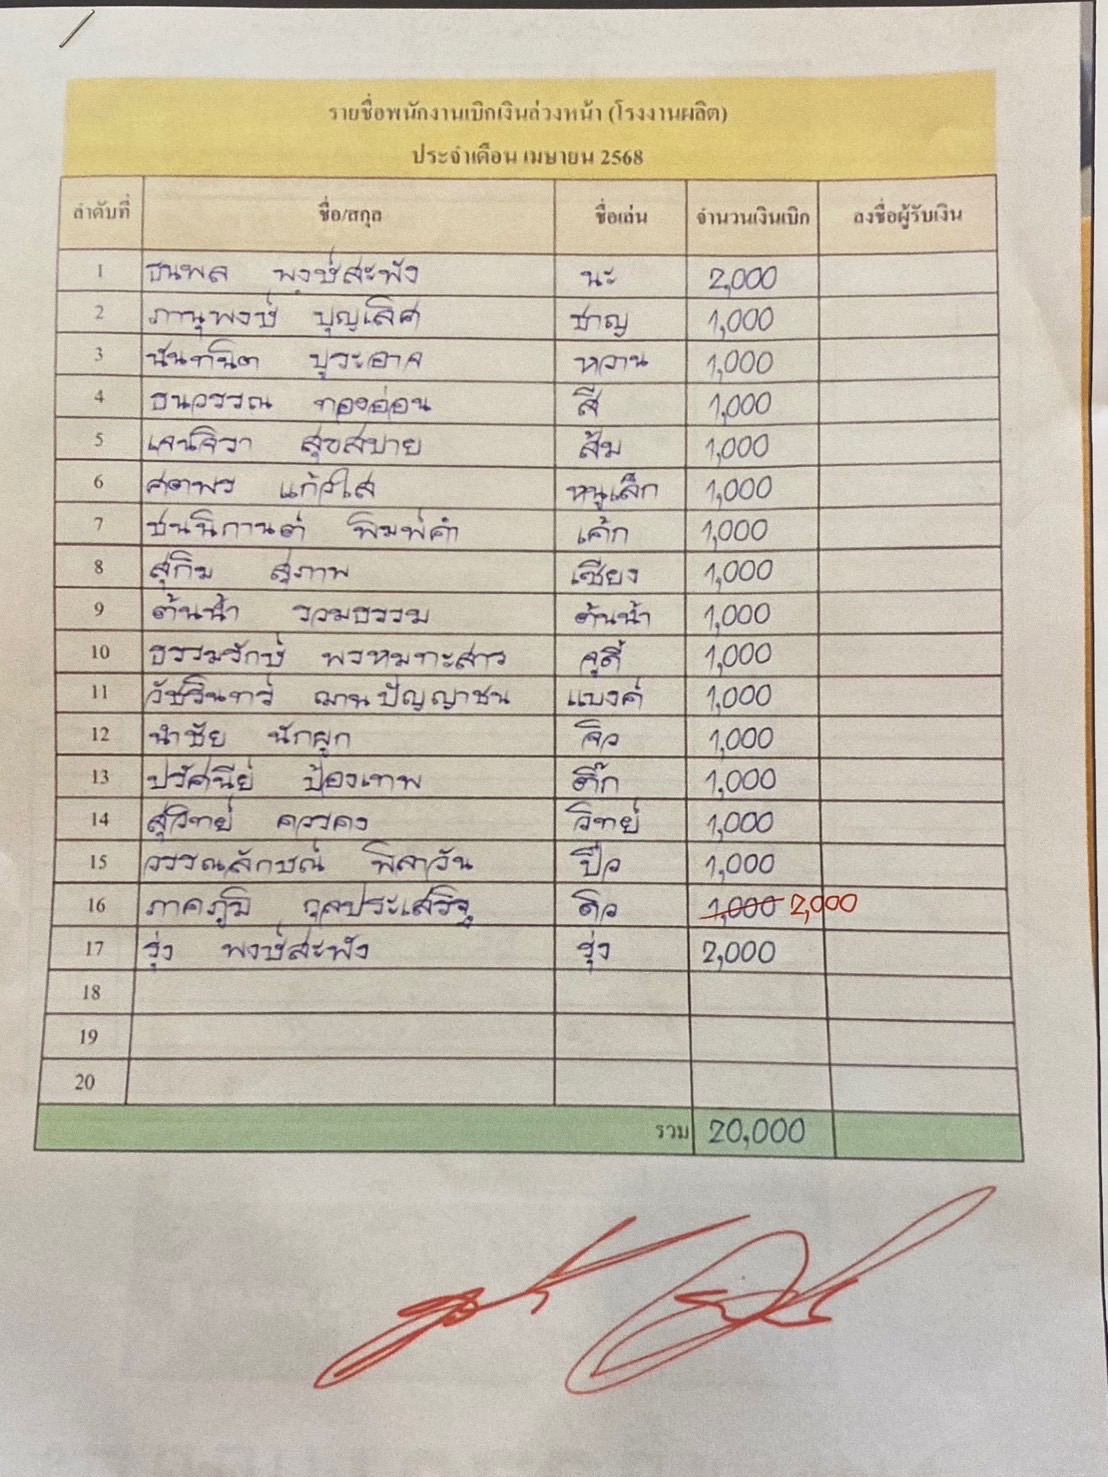 รายชื่อพนักงานเบิกเงินล่วงหน้า (โรงงานผลิต)
ประจำเดือน เมษายน 2568
ลำดับที่ ชื่อ/สกุล ชื่อเล่น จำนวนเงินเบิก ลงชื่อผู้รับเงิน
1 ธนพล พงษ์สะพัง นะ 2,000
2 ภานุพงษ์ บุญเลิศ ชาญ 1,000
3 นันทนิต บูระอาจ หวาน 1,000
4 ธนวรรณ ทองอ่อน สี 1,000
5 เจนจิรา สุขสบาย ส้ม 1,000
6 ศตพร แก้วใส หนูเล็ก 1,000
7 ชนนิกานต์ พิมพ์คำ เค้ก 1,000
8 สุกิม สุภาพ เซียง 1,000
9 ต้นน้ำ รวมธรรม ต้นน้ำ 1,000
10 ธรรมรักษ์ พรหมทะสาร จูดี้ 1,000
11 วัชรินทร์ ฌานปัญญาชน แบงค์ 1,000
12 นำชัย นักผูก จิว 1,000
13 ปรัศนีย์ ป้องเทพ ติ๊ก 1,000
14 สุวิทย์ ควรคง วิทย์ 1,000
15 วรรณลักษณ์ พิลาวัน ปิ๋ว 1,000
16 ภาคภูมิ กุลประเสริฐ ดิว 1,000 2,000
17 รุ่ง พงษ์สะพัง รุ่ง 2,000
18
19
20
รวม 20,000